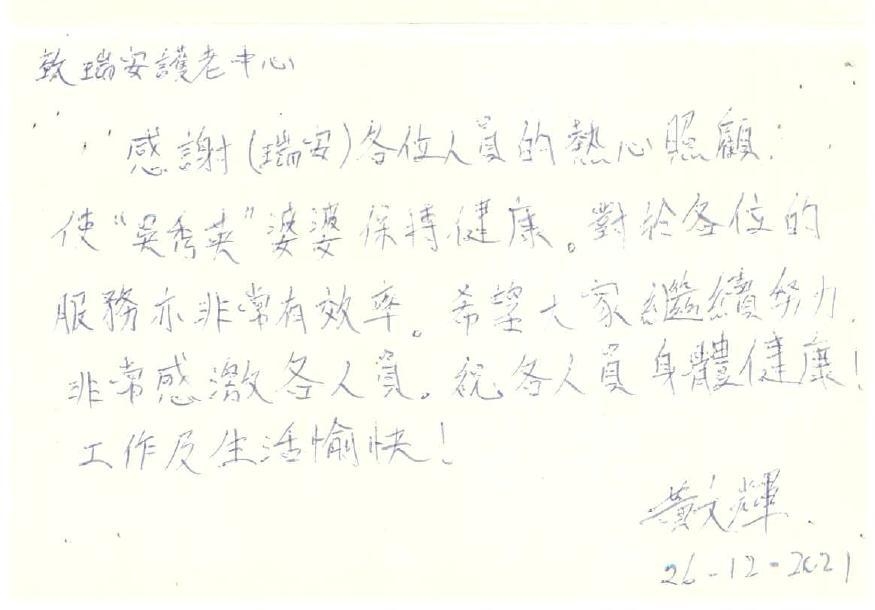 致瑞安護老中心
感謝(瑞安)各位人員的熱心照顧.
使"吳秀英"婆婆保持健康。對於各位的
服務亦非常有效率。希望大家繼續努力.
非常感激各人員。祝各人員身體健康!
工作及生活愉快!
黃文輝.
26-12-2021